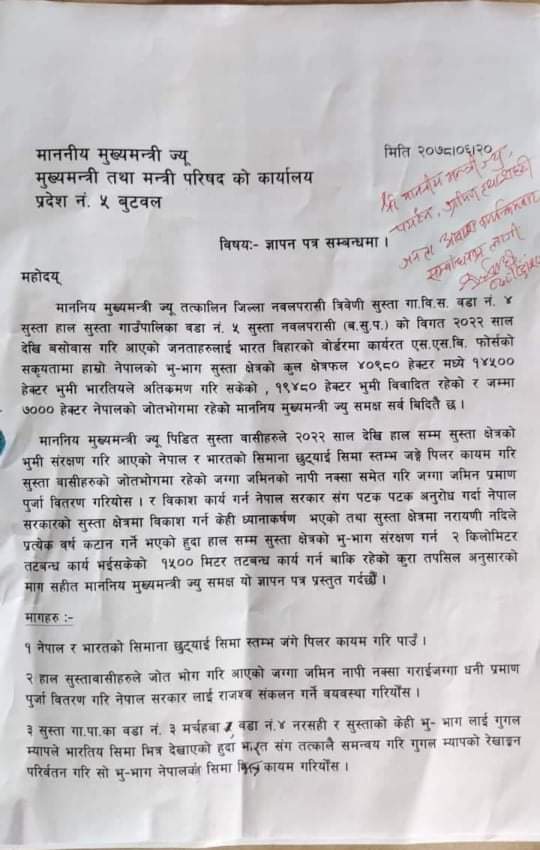 मिति २०७८।०६।२०
माननीय मुख्यमन्त्री ज्यू
मुख्यमन्त्री तथा मन्त्री परिषद को कार्यालय
प्रदेश नं. ५ बुटवल
श्री माननीय मन्त्री ज्यू,
विषय:- ज्ञापन पत्र सम्बन्धमा ।
महोदय्
माननिय मुख्यमन्त्री ज्यू तत्कालिन जिल्ला नवलपरासी त्रिवेणी सुस्ता गा.वि.स. वडा नं. ४
सुस्ता हाल सुस्ता गाउँपालिका वडा नं. ५ सुस्ता नवलपरासी (ब.सु.प.) को विगत २०२२ साल
देखि बसोवास गरि आएको जनताहरुलाई भारत विहारको बोर्डरमा कार्यरत एस.एस.बि. फोर्सको
सकृयतामा हाम्रो नेपालको भु-भाग सुस्ता क्षेत्रको कुल क्षेत्रफल ४०९८० हेक्टर मध्ये १४५००
हेक्टर भुमी भारतियले अतिकमण गरि सकेको , १९४८० हेक्टर भुमी विवादित रहेको र जम्मा
७००० हेक्टर नेपालको जोतभोगमा रहेको माननिय मुख्यमन्त्री ज्यु समक्ष सर्व बिदितै छ ।
माननिय मुख्यमन्त्री ज्यु पिडित सुस्ता वासीहरुले २०२२ साल देखि हाल सम्म सुस्ता क्षेत्रको
भुमी संरक्षण गरि आएको नेपाल र भारतको सिमाना छुट्याई सिमा स्तम्भ जङ्गे पिलर कायम गरि
सुस्ता वासीहरुको जोतभोगमा रहेको जग्गा जमिनको नापी नक्सा समेत गरि जग्गा जमिन प्रमाण
पुर्जा वितरण गरियोस । र विकाश कार्य गर्न नेपाल सरकार संग पटक पटक अनुरोध गर्दा नेपाल
सरकारको सुस्ता क्षेत्रमा विकाश गर्न केही ध्यानाकर्षण भएको तथा सुस्ता क्षेत्रमा नरायणी नदिले
प्रत्येक वर्ष कटान गर्ने भएको हुदा हाल सम्म सुस्ता क्षेत्रको भु-भाग संरक्षण गर्न २ किलोमिटर
तटबन्ध कार्य भईसकेको १५०० मिटर तटबन्ध कार्य गर्न बाकि रहेको कुरा तपसिल अनुसारको
माग सहीत माननिय मुख्यमन्त्री ज्यु समक्ष यो ज्ञापन पत्र प्रस्तुत गर्दछौं ।
मागहरु :-
१ नेपाल र भारतको सिमाना छुट्याई सिमा स्तम्भ जंगे पिलर कायम गरि पाउँ ।
२ हाल सुस्तावासीहरुले जोत भोग गरि आएको जग्गा जमिन नापी नक्सा गराईजग्गा धनी प्रमाण
पुर्जा वितरण गरि नेपाल सरकार लाई राजश्व संकलन गर्ने बयवस्था गरियोँस ।
३ सुस्ता गा.पा.का वडा नं. ३ मर्चहवा वडा नं.४ नरसही र सुस्ताको केही भु- भाग लाई गुगल
म्यापले भारतिय सिमा भित्र देखाएको हुदा भारत संग तत्कालै समन्वय गरि गुगल म्यापको रेखाङ्कन
परिर्वतन गरि सो भु-भाग नेपालका सिमा कायम गरियोँस ।